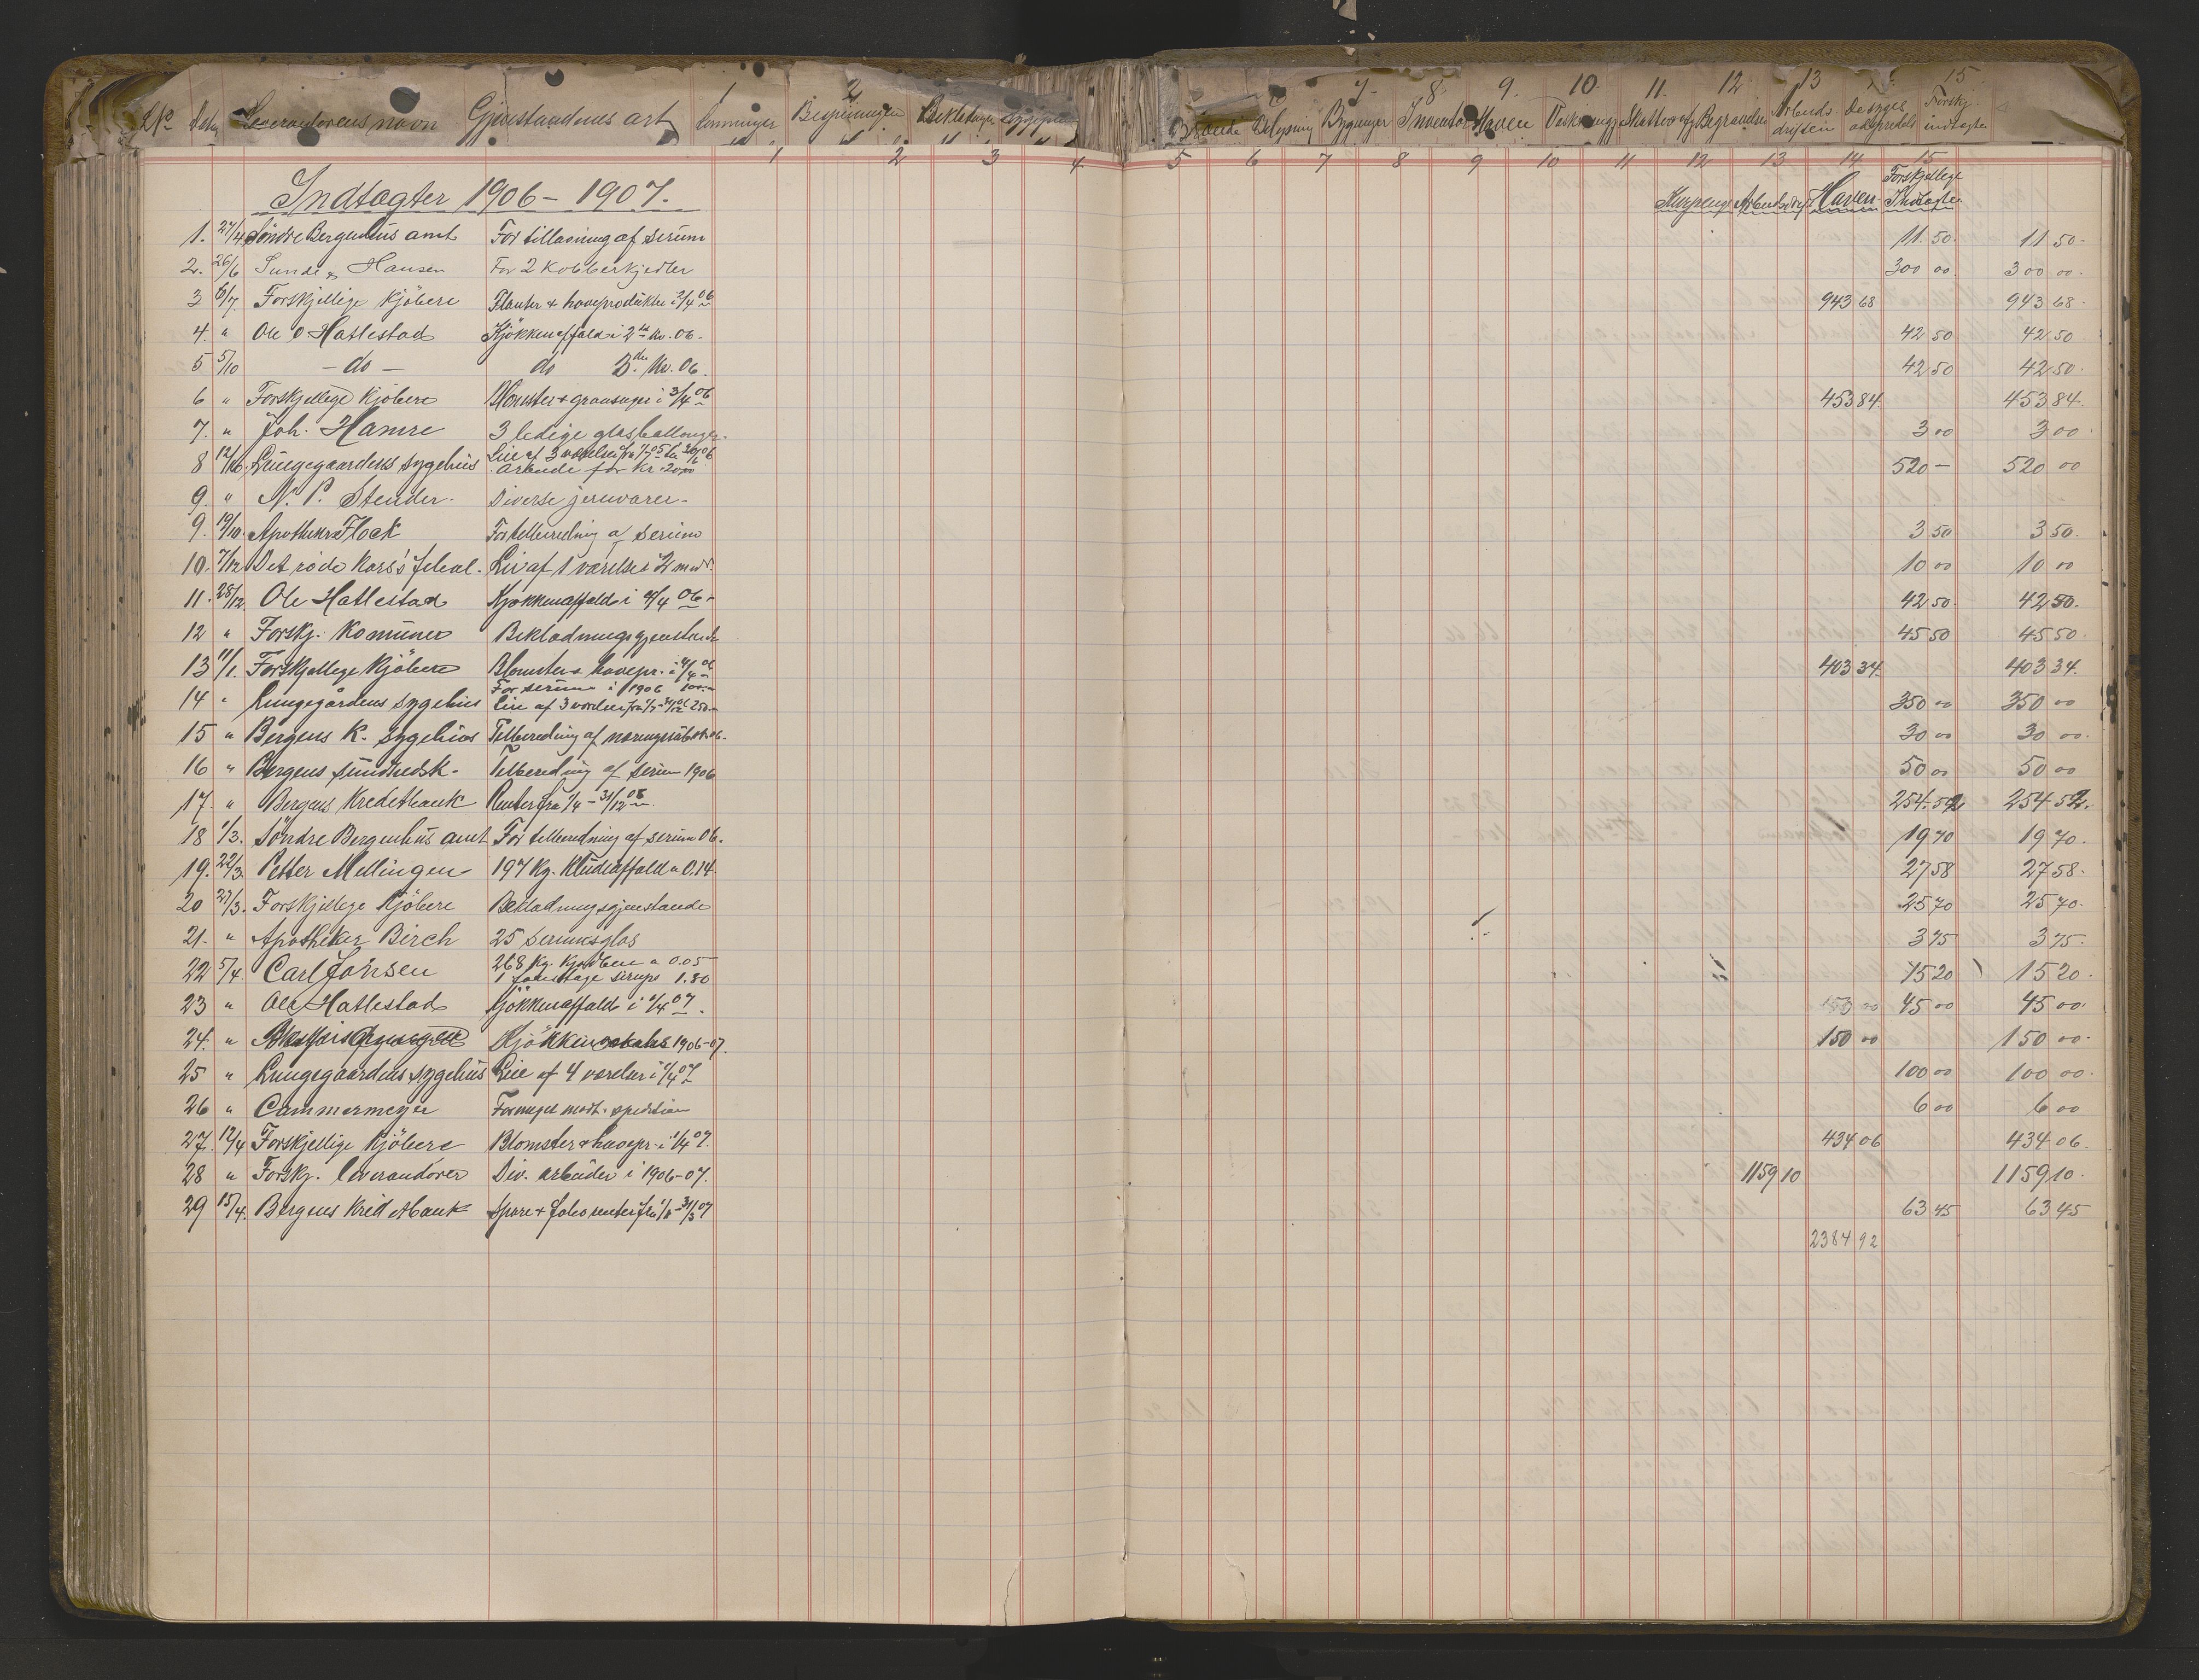 No Dato Leverandørens navn Gjenstandens art Lønninger Bespisningen Beklædningen Sygepleien
1 2
Brænde Belysning Bygninger Inventar Haven Vaskeri Skatter afg Begravelse Arbeids-driften De syges adspredels Forskj. indtægter
7. 8 9. 10. 11. 12 13 15
1 2 3 4 5 6 7 8 9 10 11 12 13 14 15
Indtægter 1906 – 1907. Kurpenge Arbeidsdrift Haven Forskjellige Indtægter
1. 27/4 Söndre Bergenhus amt For tillavning af serum 11.50 11 50
2. 26/6 Sunde & Hansen For 2 kobberkjedler 300 00 300 00
3 6/7. Forskjellige kjöbere Planter & haveprodukter i 2/4 06 943 68 943 68
4. " Ole O Hatlestad Kjökkenaffald i 2det kv. 06. 42 50 42 50
5 5/10 – do – do 3die kv. 06. 42 50 42 50
6 " Forskjellige kjöbere Blomster & grønsager i 3/4 06 453 84 453 84
7. " Joh. Hamre 3 ledige glasballonger. 3 00 3 00
8 12/10 Lungegaardens sygehus Leie af 3 værelser fra 1/7 05 til 30/6 06 Arbeide for kr. 20.00 520 – 520 00
9. " N. P. Stender. Diverse jernvarer.
9. 19/10. Apotheker Flock For tilberedning af serum 3 50 3 50
10. 7/12 Det røde kors's filial. Leie af 1 værelse i 2 mndr. 10 00 10 00
11. 28/12 Ole Hatlestad Kjøkkenaffald i 4/4 06 42 50 42 50
12 " Forskj. Komuner Beklædningsgjenstande 45 50 45 50
13 11/1. Forskjellige kjöbere Blomster & havepr. i 4/4 06 403 34 403 34
14 " Lungegårdens sygehus For serum i 1906 100.– Leie af 3 værelser fra 1/7–31/12 06 250.– 350 00 350 00
15 " Bergens K. sygehus Tilberedning af næringssubst. 06. 30 00 30 00
16 " Bergens sundhedsk. Tilberedning af serum 1906 50 00 50 00
17. " Bergens Kreditbank Renter fra 1/4 – 31/12 06 254.52 254 52
18 1/3. Söndre Bergenhus amt For tilberedning af serum 06. 19 70 19 70
19. 22/3. Petter Mellingen 197 Kg. Kludeaffald a 0.14 27 58 27 58
20 27/3. Forskjellige kjöbere Beklædningsgjenstande 25 70 25 70
21. " Apotheker Birch 25 serumsglas 3 75 3 75
22 5/4. Carl Johnsen 268 Kg. Kjødben a 0.05 1 tomtftage sirups 1.80 15 20 15 20
23 " Ole Hatlestad Kjökkenaffald i 1/4 07. 150 00 45 00 45 00
24. " Kjökken 1906–07. 150 00 150 00
25 " Lungegaardens sygehus Leie af 4 værelser i 1/4 07 100 00 100 00
26 " Cammermeyer 6 00 6 00
27. 12/4 Forskjellige kjöbere Blomster & havepr. i 1/4 07. 434 06 434 06
28 " Forskj. leverandører Div. arbeider i 1906–07. 1159 10 1159 10
29 15/4. Bergens Kreditbank Spare & folio renter fra 1/1–31/3 07 63 45 63 45
2384 92